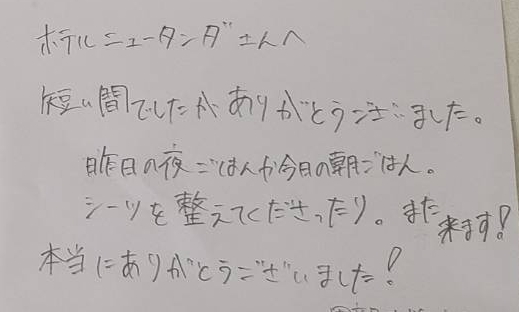 ホテルニュータンダさんへ
短い間でしたがありがとうございました。
昨日の夜ごはんか今日の朝ごはん。
シーツを整えてくださったり。また来ます!
本当にありがとうございました!